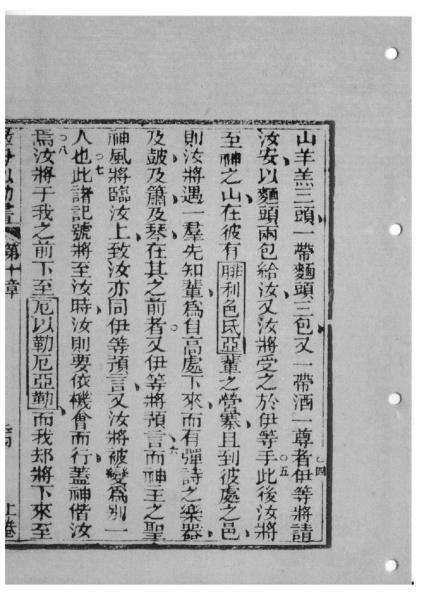 山羊羔三頭一帶麵頭三包又一帶酒一尊者伊等將請
汝安以麵頭兩包給汝又汝將受之於伊等手此後汝將
至神之山在彼有腓利色氏亞輩之營寨且到彼處之邑
則汝將遇一羣先知輩爲自高處下來而有彈詩之樂器
及鼓及簫及琴在其之前者又伊等將預言而神王之聖
神風將臨汝上致汝亦同伊等預言又汝將被變爲別一
人也此諸記號將至汝時汝則要依機會而行蓋神偕汝
焉汝將于我之前下至厄以勒厄亞勒而我却將下來至
第十章 上卷